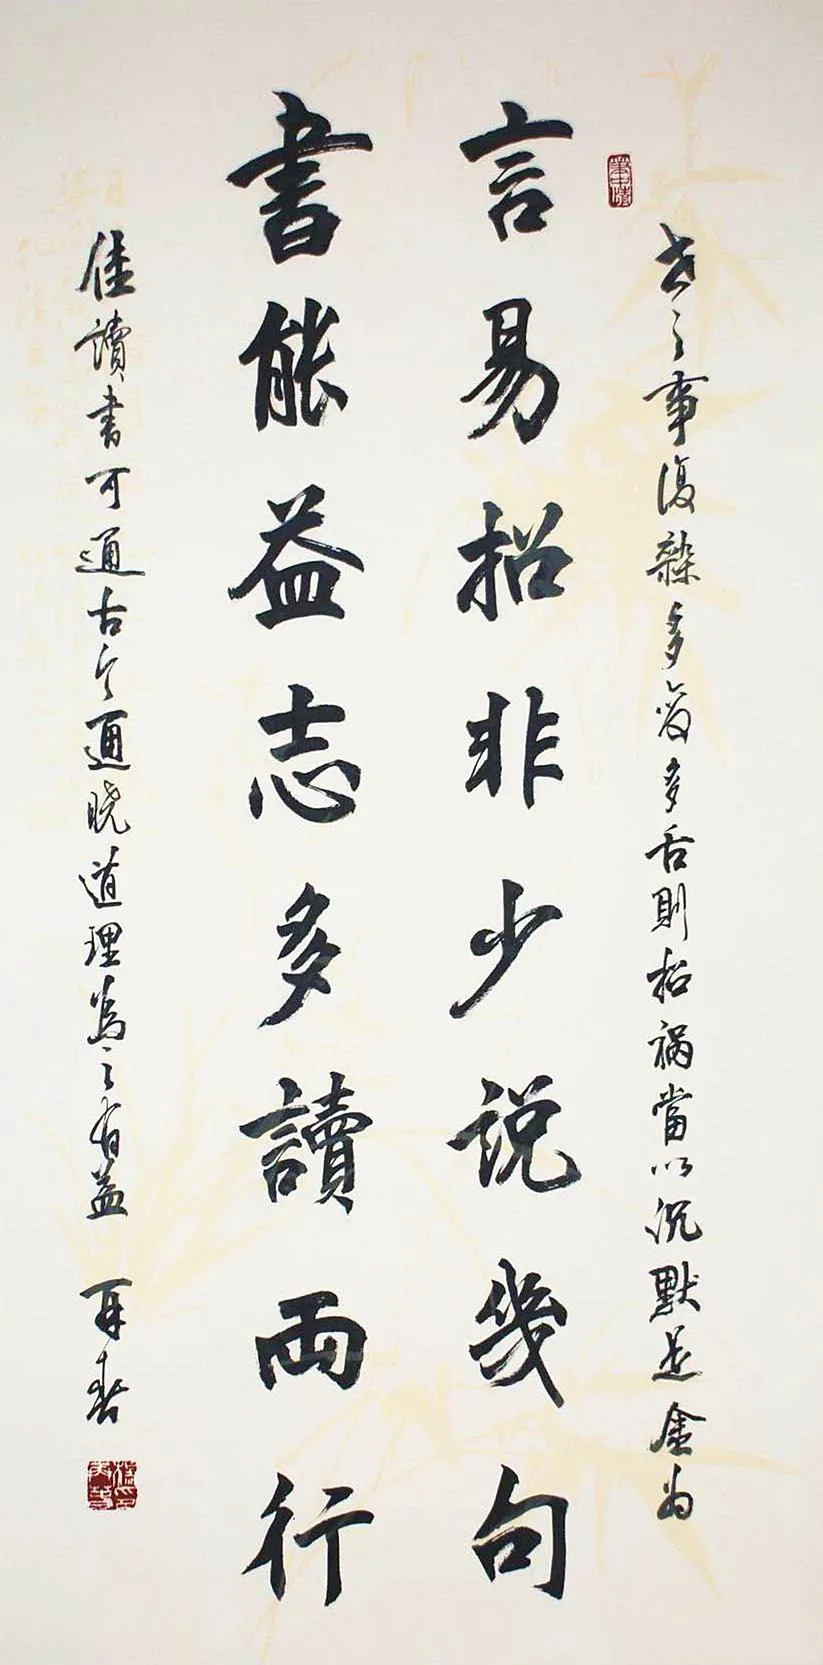 世之事復雜多變多舌則招禍當以沉默是金為
言易招非少説幾句
書能益志多讀兩行
佳讀書可通古今通曉道理為之有益
再春
筆中情